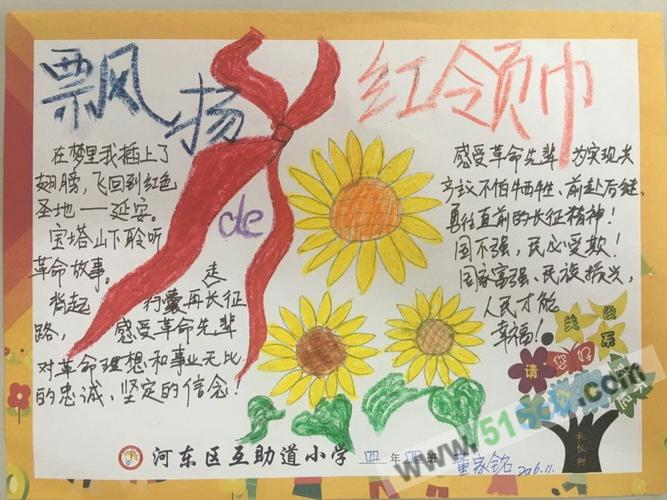 飘扬de红领巾
在梦里我插上了
翅膀，飞回到红色
圣地——延安。
宝塔山下聆听
革命故事。
背起行囊再走长征
路，感受革命先辈
对革命理想和事业无比
的忠诚、坚定的信念！
感受革命先辈为实现共
产主议不怕牺牲、前赴后继、
勇往直前的长征精神！
国不强，民必受欺！
国家富强、民族振兴，
人民才能
幸福！
请
礼仪树
河东区互助道小学 四年四班 董家铭 2016.11.
www.51
.com